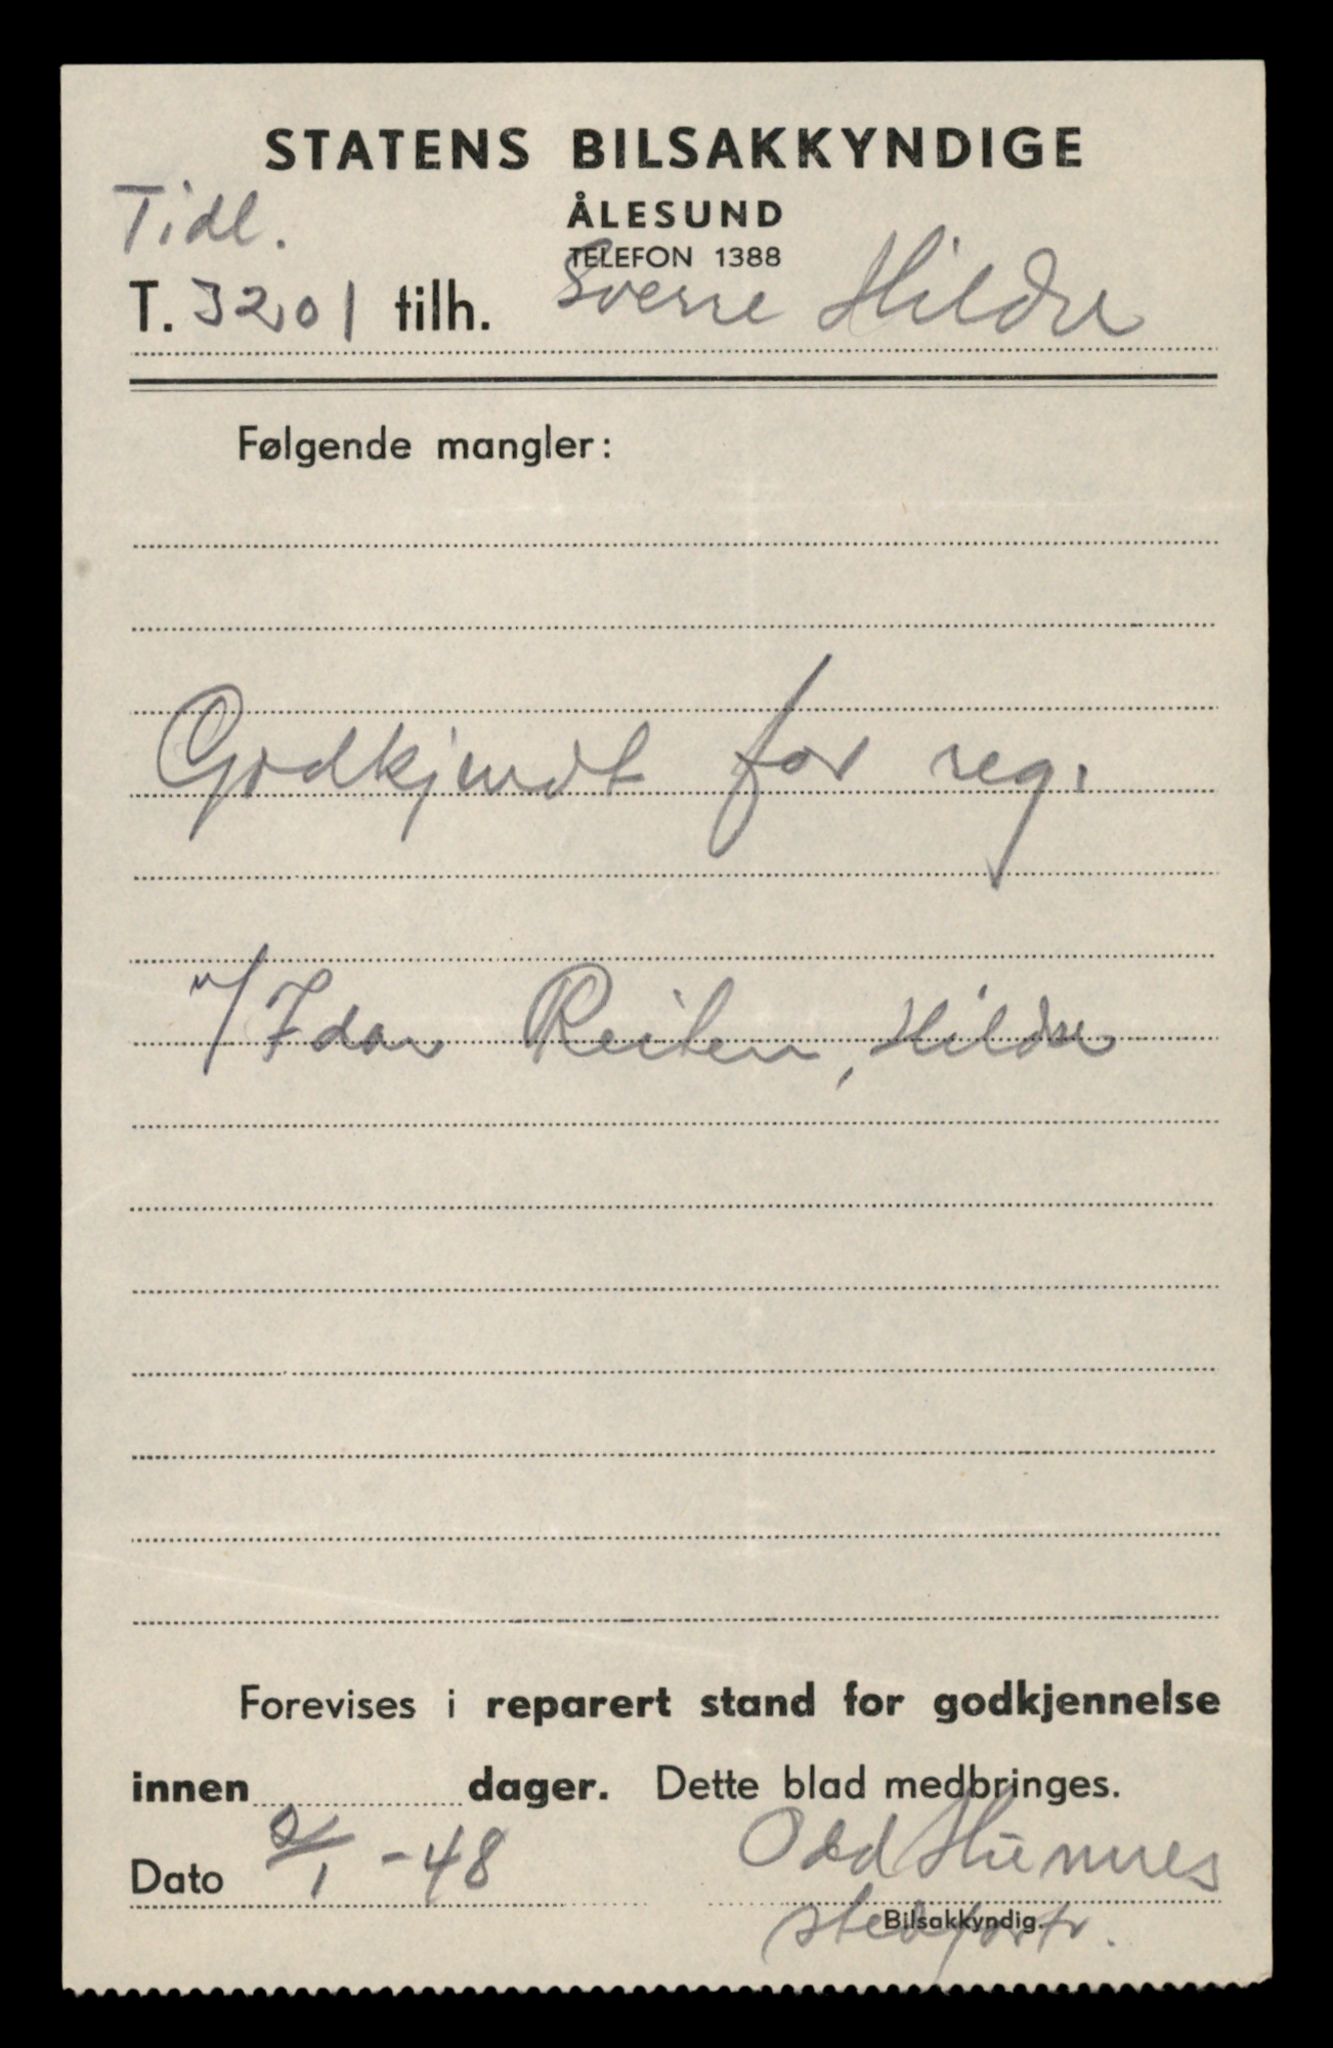 STATENS BILSAKKYNDIGE
ÅLESUND
TELEFON 1388
Tidl.
T. 3201 tilh. Sverre Hildre
Følgende mangler:
Godkjendt for reg.
v/ Idar Reiten, Hildre
Forevises i reparert stand for godkjennelse
innen dager. Dette blad medbringes.
Dato 2/1 -48 Odd Humnes
Bilsakkyndig.
stedfortr.